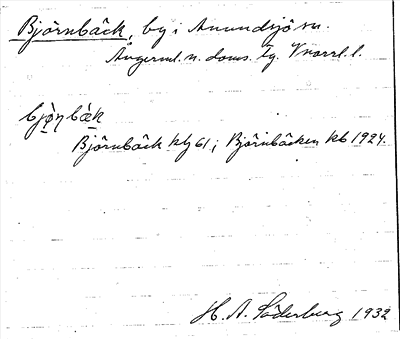 Björnbäck, by i Anundsjö sn.
Ångerml. n. doms. tg. Vnorrl. l.
bjö̀ṇbäk
Björnbäck kb 61; Björnbäcken kb 1924.
H. A. Söderberg 1932